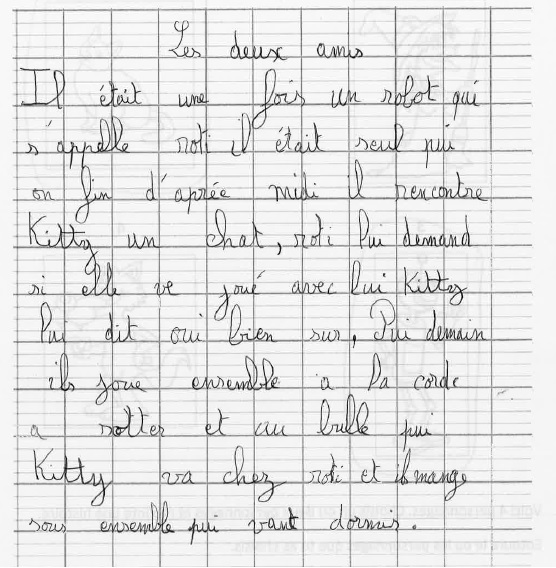 Les deux amis
Il était une fois un robot qui
s'appelle roti il était seul pui
on fin d'aprée midi il rencontre
Kitty un chat, roti lui demand
si elle ve joué avec lui Kitty
lui dit oui bien sur, Pui demain
ils joue ensemble a la corde
a sotter et au bulle pui
Kitty va chez roti et il mange
sous ensemble pui vant dormir.